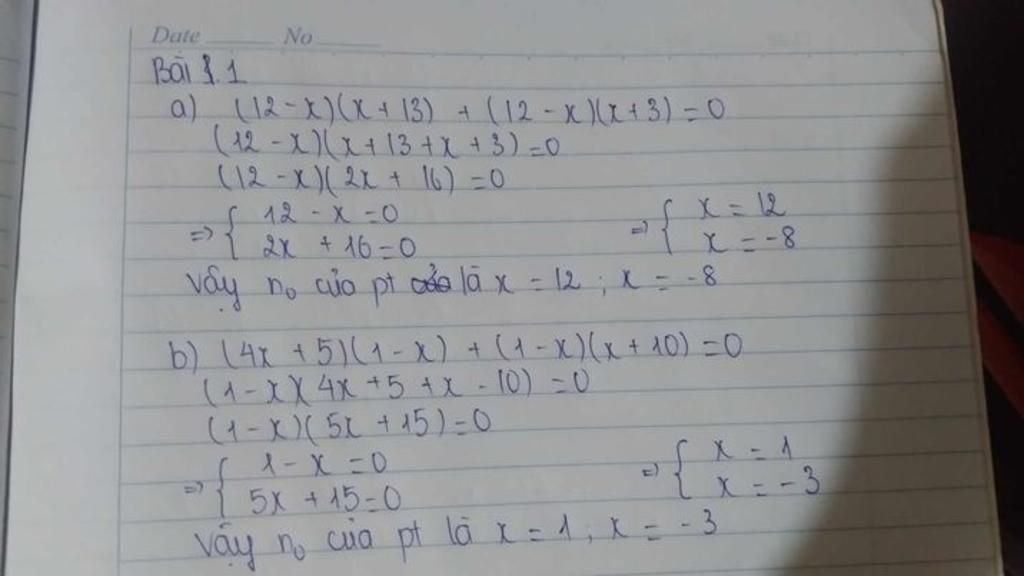 Date No
Bài 1.1
a) (12-x)(x+13) + (12-x)(x+3)=0
(12-x)(x+13+x+3)=0
(12-x)(2x+16)=0
=> { 12-x=0 => { x=12
2x+16=0 x=-8
Vậy n₀ của pt là x=12; x=-8
b) (4x+5)(1-x) + (1-x)(x+10)=0
(1-x)(4x+5+x-10)=0
(1-x)(5x+15)=0
=> { 1-x=0 => { x=1
5x+15=0 x=-3
Vậy n₀ của pt là x=1; x=-3